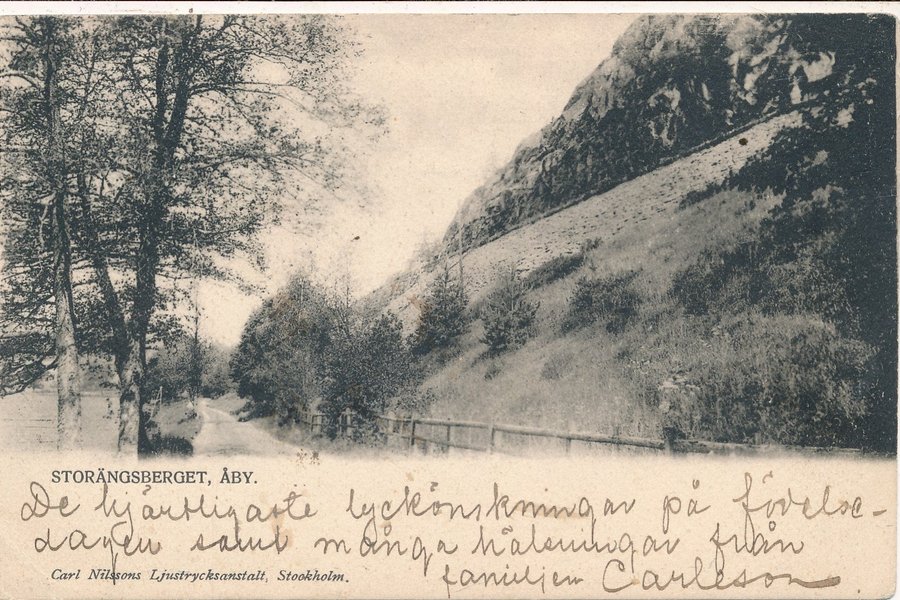 STORÄNGSBERGET, ÅBY.
De hjärtligaste lyckönskningar på födelse-
dagen samt många hälsningar från
Carl Nilssons Ljustrycksanstalt, Stockholm.
familjen Carleson